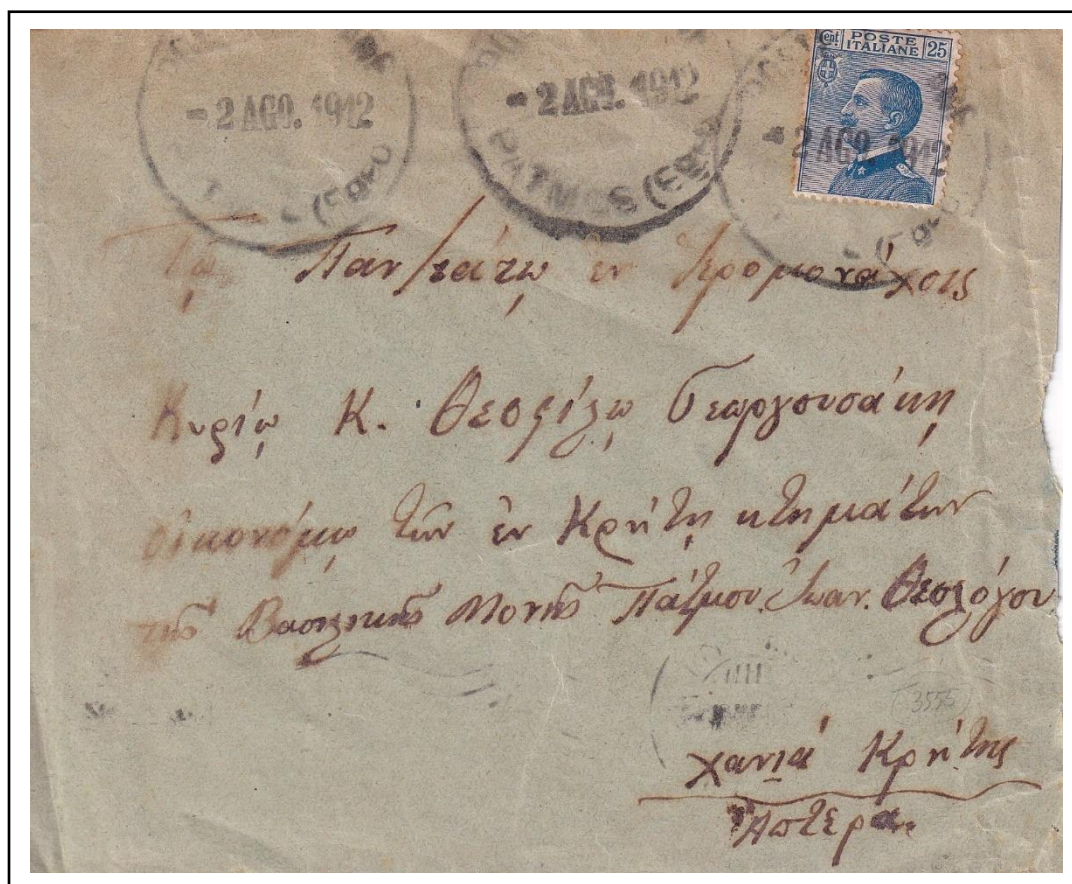 - 2 AGO. 1912
- 2 AGO. 1912
PATMOS (Egeo)
Cent POSTE ITALIANE 25
- 2 AGO. 1912
(Egeo)
Τῷ Παν/τάτῳ ἐν Ἱερομονάχοις
Κυρίῳ Κ. Θεοφίλῳ Γεωργουσάκη
οἰκονόμῳ τῶν ἐν Κρήτῃ κτημάτων
τῆς Βασιλικῆς Μονῆς Πάτμου Ἰωαν. Θεολόγου
3555
Χανιά Κρήτης
Ἀστέρα